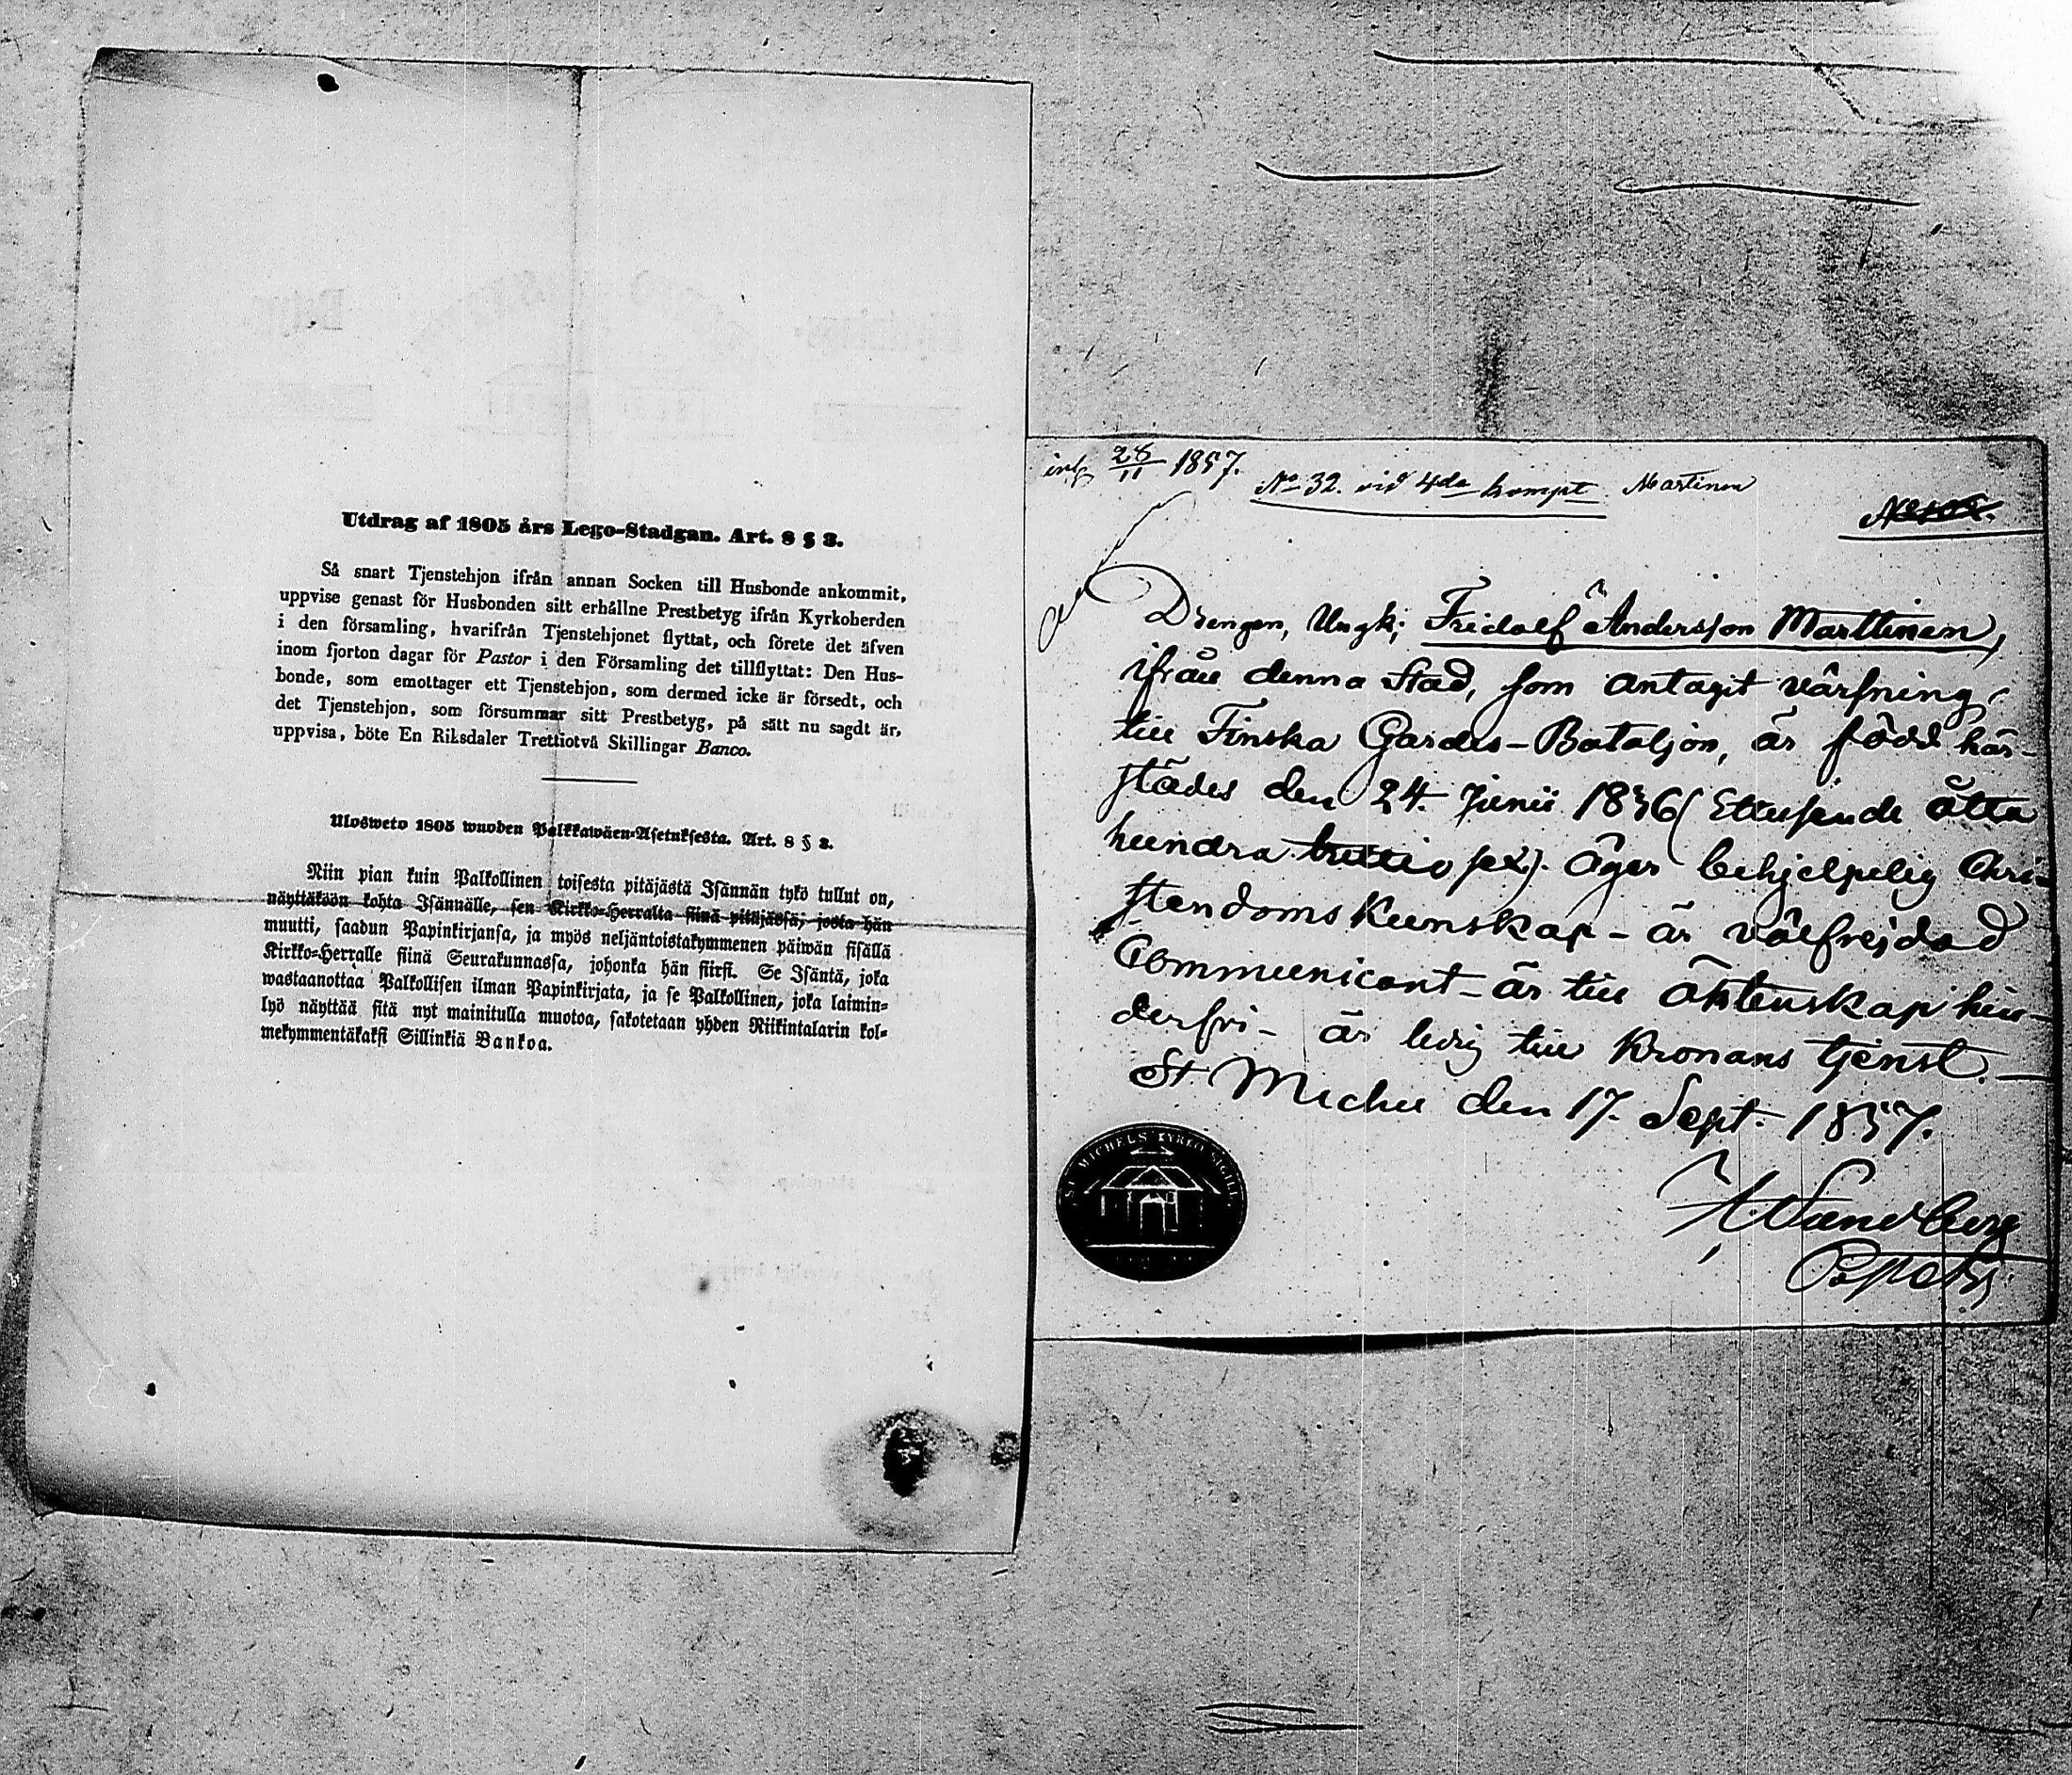 Utdrag af 1805 års Lego-Stadgan. Art. 8 § 3.
Så snart Tjenstehjon ifrån annan Socken till Husbonde ankommit,
uppvise genast för Husbonden sitt erhållne Prestbetyg ifrån Kyrkoherden
i den församling, hvarifrån Tjenstehjonet flyttat, och förete det äfven
inom fjorton dagar för Pastor i den Församling det tillflyttat: Den Hus-
bonde, som emottager ett Tjenstehjon, som dermed icke är försedt, och
det Tjenstehjon, som försummar sitt Prestbetyg, på sätt nu sagdt är,
uppvisa, böte En Riksdaler Trettiotvå Skillingar Banco.
Ulosweto 1805 wuoden Palkkawäen-Asetuksesta. Art. 8 § 3.
Niin pian kuin Palkollinen toisesta pitäjästä Isännän tykö tullut on,
näyttäköön kohta Isännälle, sen Kirkko-Herralta siinä pitäjässä, josta hän
muutti, saadun Papinkirjansa, ja myös neljäntoistakymmenen päiwän sisällä
Kirkko-Herralle siinä Seurakunnassa, johonka hän siirsi. Se Isäntä, joka
wastaanottaa Palkollisen ilman Papinkirjata, ja se Palkollinen, joka laimin-
lyö näyttää sitä nyt mainitulla muotoa, sakotetaan yhden Riikintalarin kol-
mekymmentäkaksi Sillinkiä Bankoa.
28/11 1857.
No 32. vid 4da kompt Martinen
Drengen, Ungk; Fridolf Andersson Marttinen,
ifrån denna Stad, som antagit värfning
till Finska Gardes-Bataljon, är född här-
städes den 24. Junii 1836 (Ettusende åtta
hundra trettio sex). Äger behjelpelig Chri-
stendoms kunskap - är välfrejdad
Communicant - är till äktenskap hin-
derfri - är ledig till Kronans tjenst. -
St Michel den 17. Sept. 1857.
ST MICHELS KYRKO SIGILL